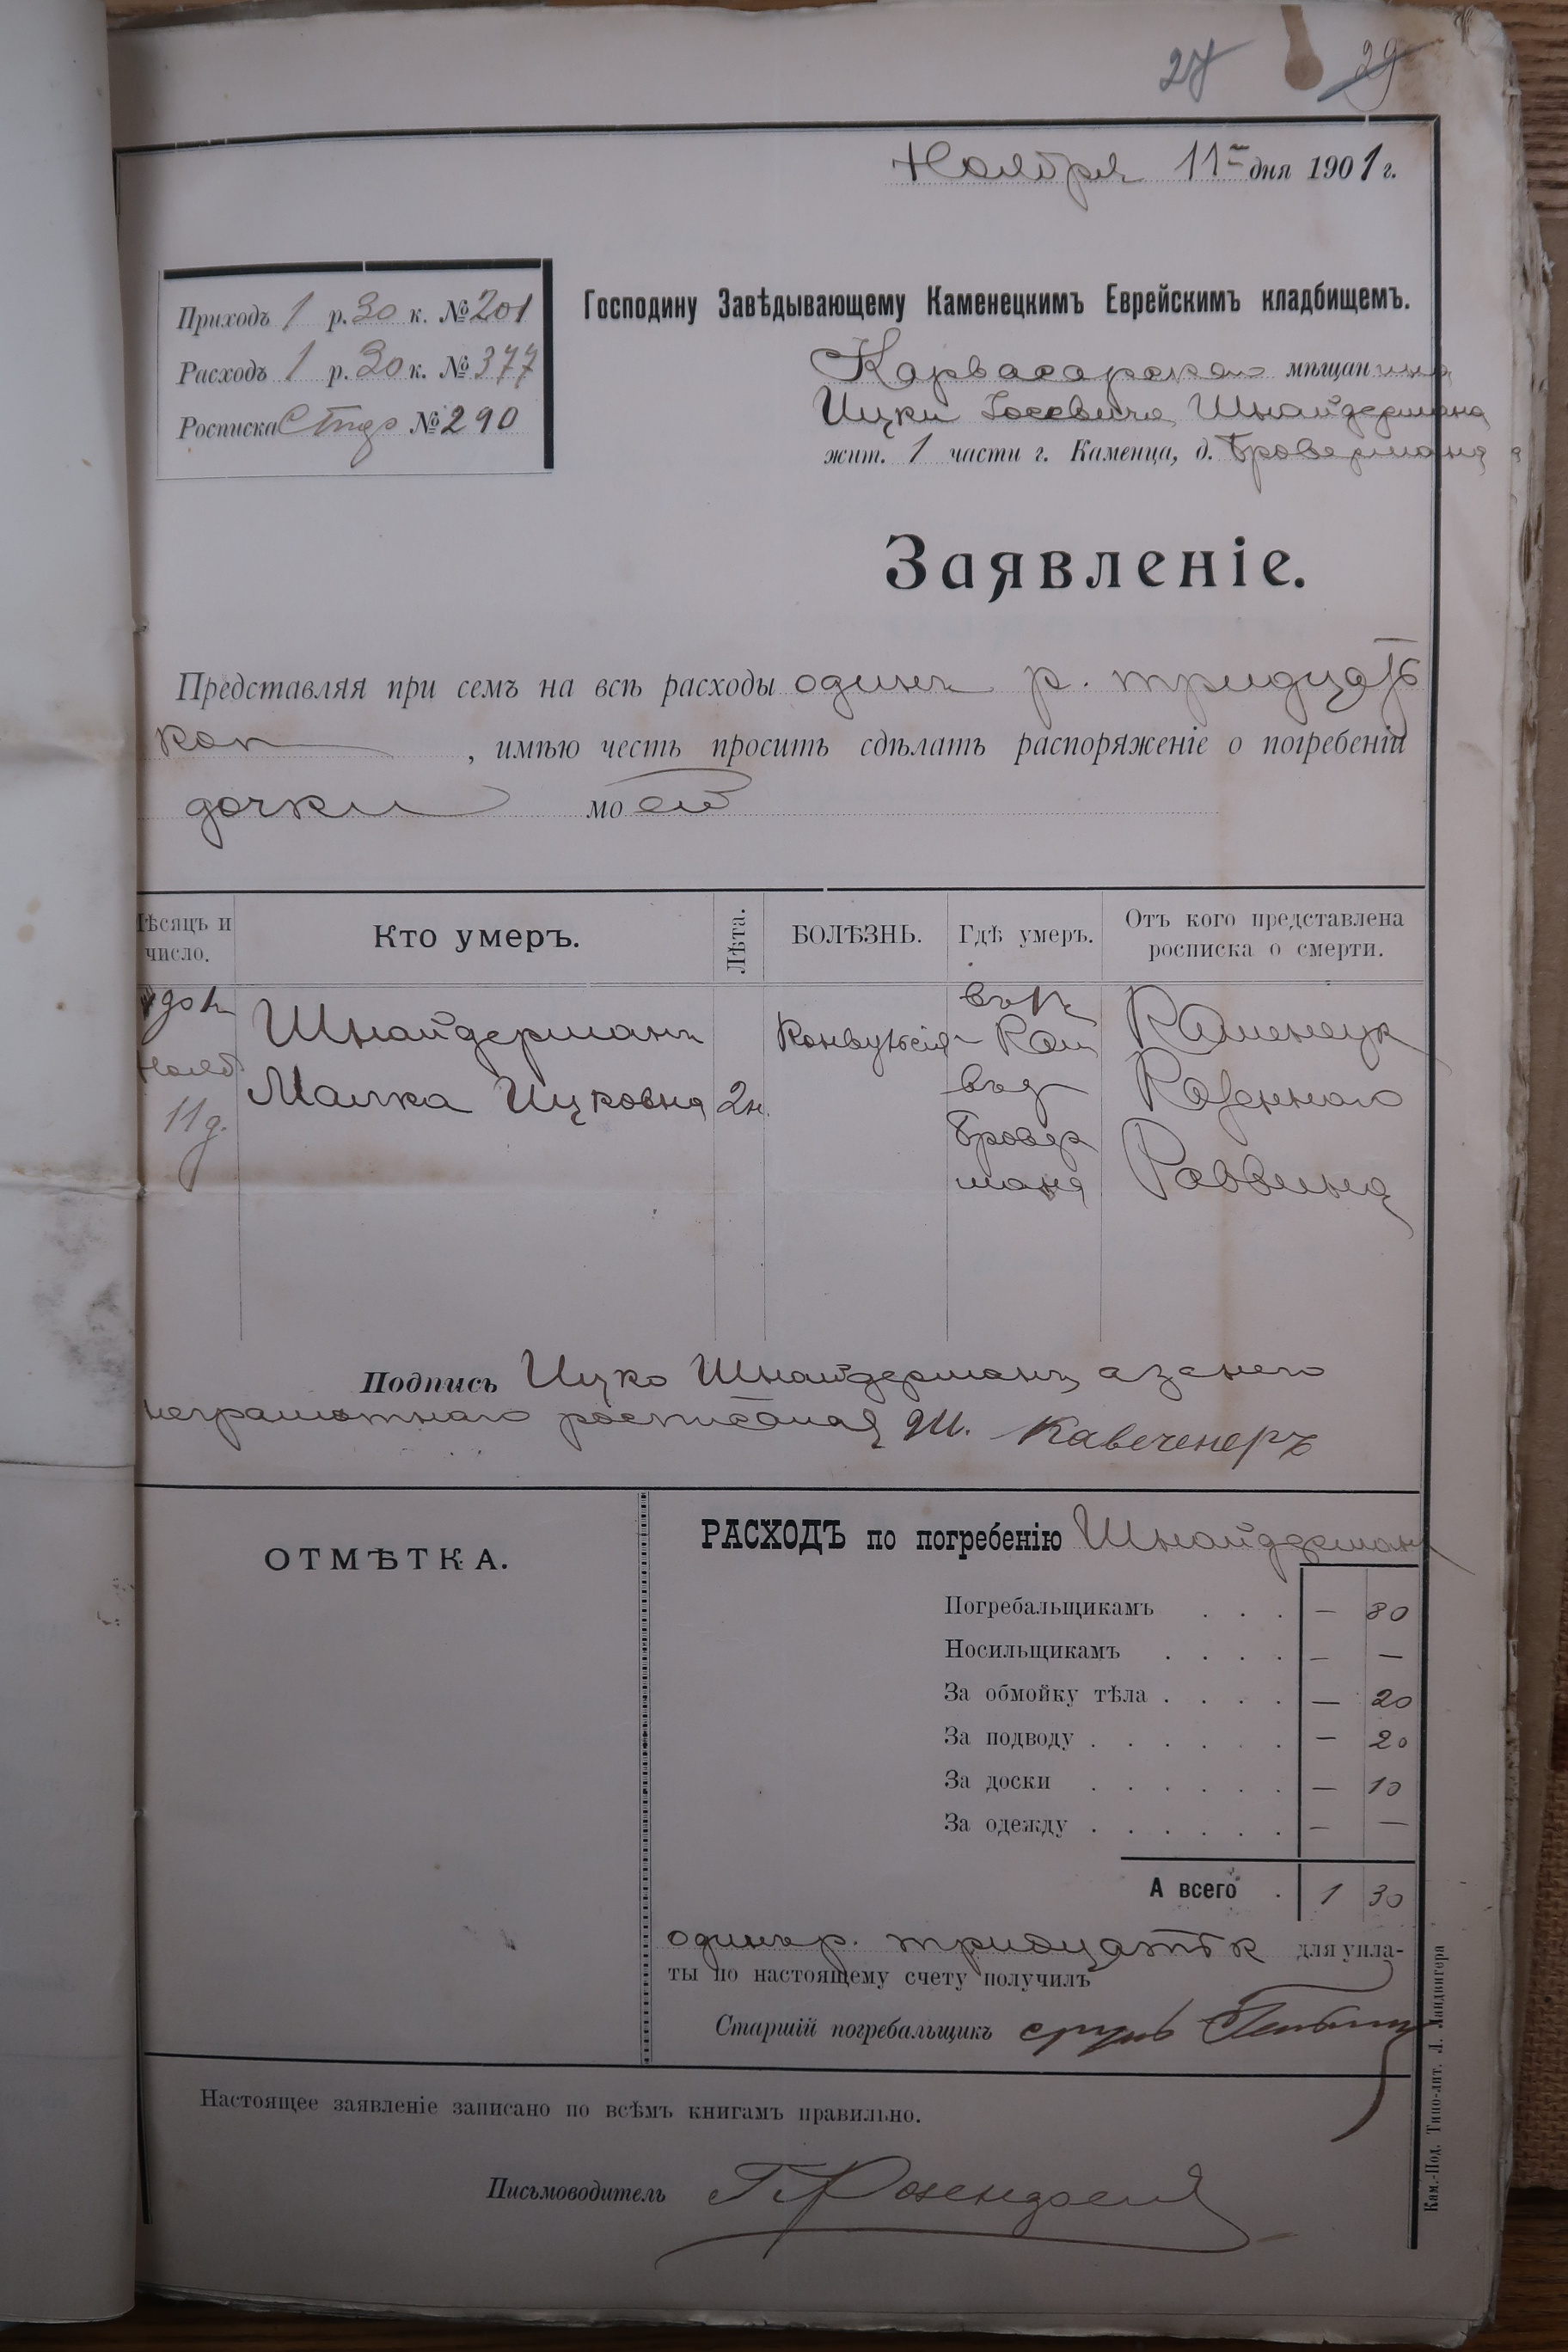 27 29
Ноября 11 дня 1901 г.
Приходъ 1 р. 30 к. № 201
Расходъ 1 р. 30 к. № 377
Росписка № 290
Господину Завѣдывающему Каменецкимъ Еврейскимъ кладбищемъ.
Карвасарскаго мѣщанина
Ицки Іосевича Шнайдермана
жит. 1 части г. Каменца, д. Бровермана
Заявленіе.
Представляя при семъ на всѣ расходы одинъ р. тридцать
коп , имѣю честь просить сдѣлать распоряженіе о погребеніи
дочки моей
Мѣсяцъ и число. Кто умеръ. Лѣта. БОЛѢЗНЬ. Гдѣ умеръ. Отъ кого представлена росписка о смерти.
Шнайдерманъ Каменецк
Нояб Малка Ицковна 2н. Казеннаго
11 д. Бровер
мана Раввина
Подпись Ицко Шнайдерманъ а за него
неграмотнаго росписался Ш. Кавеченеръ
ОТМѢТКА.
РАСХОДЪ по погребенію Шнайдерман
Погребальщикамъ . . . — 80
Носильщикамъ . . . . — —
За обмойку тѣла . . . . — 20
За подводу . . . . . . — 20
За доски . . . . . . — 10
За одежду . . . . . . — —
А всего . 1 30
одинъ р. тридцать к для упла-
ты по настоящему счету получилъ
Старшій погребальщикъ
Настоящее заявленіе записано по всѣмъ книгамъ правильно.
Письмоводитель
Кам.-Под. Типо-лит. Л. Ландвигера